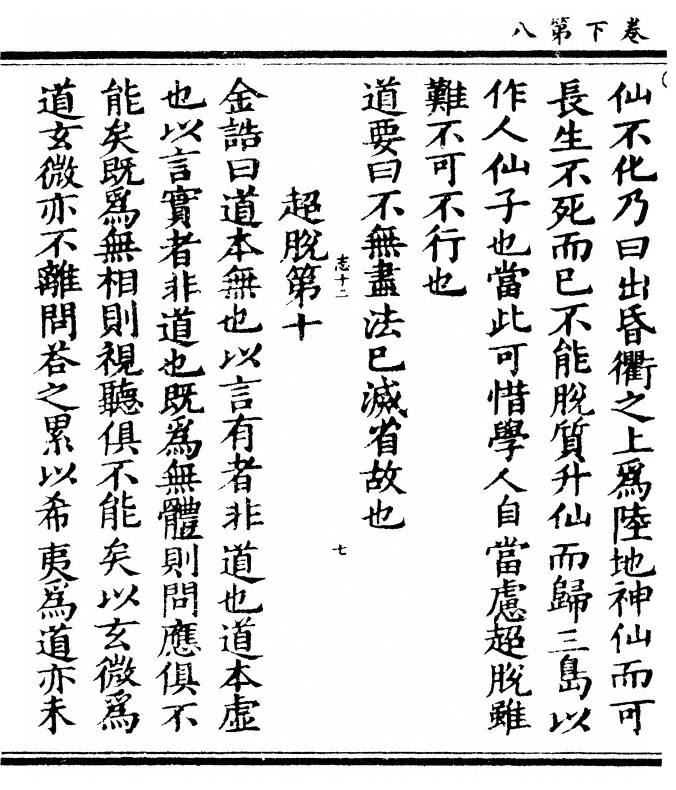 卷下第八
仙不化乃曰出昏衢之上爲陸地神仙而可
長生不死而巳不能脫質升仙而歸三島以
作人仙子也當此可惜學人自當慮超脫雖
難不可不行也
道要曰不無盡法巳滅省故也
志十二
七
超脫第十
金誥曰道本無也以言有者非道也道本虛
也以言實者非道也既爲無體則問應俱不
能矣既爲無相則視聽俱不能矣以玄微爲
道玄微亦不離問荅之累以希夷爲道亦未